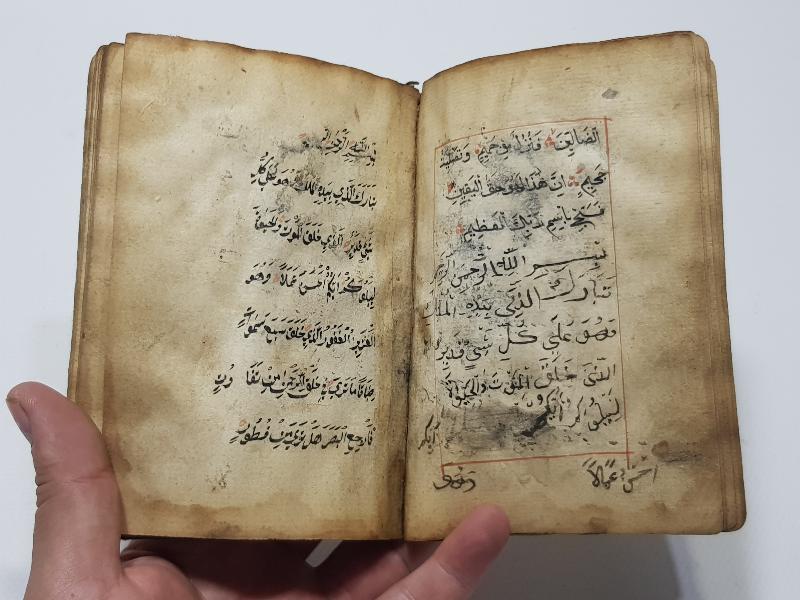 الضالين فنزل من حميم وتصلية
جحيم ان هذا لهو حق اليقين
فسبح باسم ربك العظيم
بسم الله الرحمن الرحيم
تبارك الذي بيده الملك
وهو على كل شي قدير
الذي خلق الموت والحيوة
ليبلوكم ايكم
ايكم
احسن عملا وهو
بسم الله الرحمن الرحيم
تبارك الذي بيده الملك وهو على كل
شي قدير الذي خلق الموت والحيوة
ليبلوكم ايكم احسن عملا وهو
العزيز الغفور الذي خلق سبع سموات
طباقا ما ترى في خلق الرحمن من تفاوت
فارجع البصر هل ترى من فطور